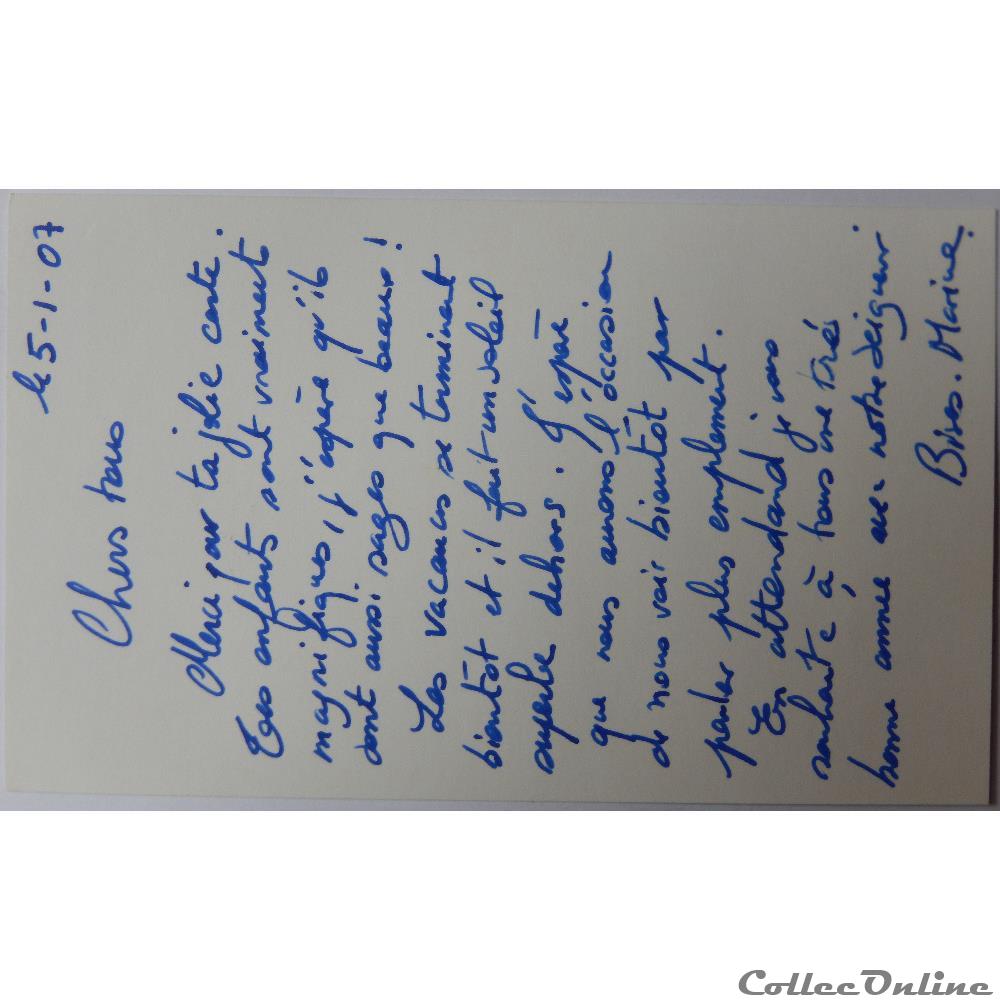 le 5-1-07
Chers tous
Merci pour ta jolie carte.
Tes enfants sont vraiment
magnifiques, j'espère qu'ils
sont aussi sages que beaux !
Les vacances se terminent
bientôt et il fait un soleil
superbe dehors. J'espère
que nous aurons l'occasion
de nous voir bientôt pour
parler plus emplement.
En attendand je vous
souhaite à tous une très
bonne année avec notre seigneur
Bises. Marine.
CollecOnline